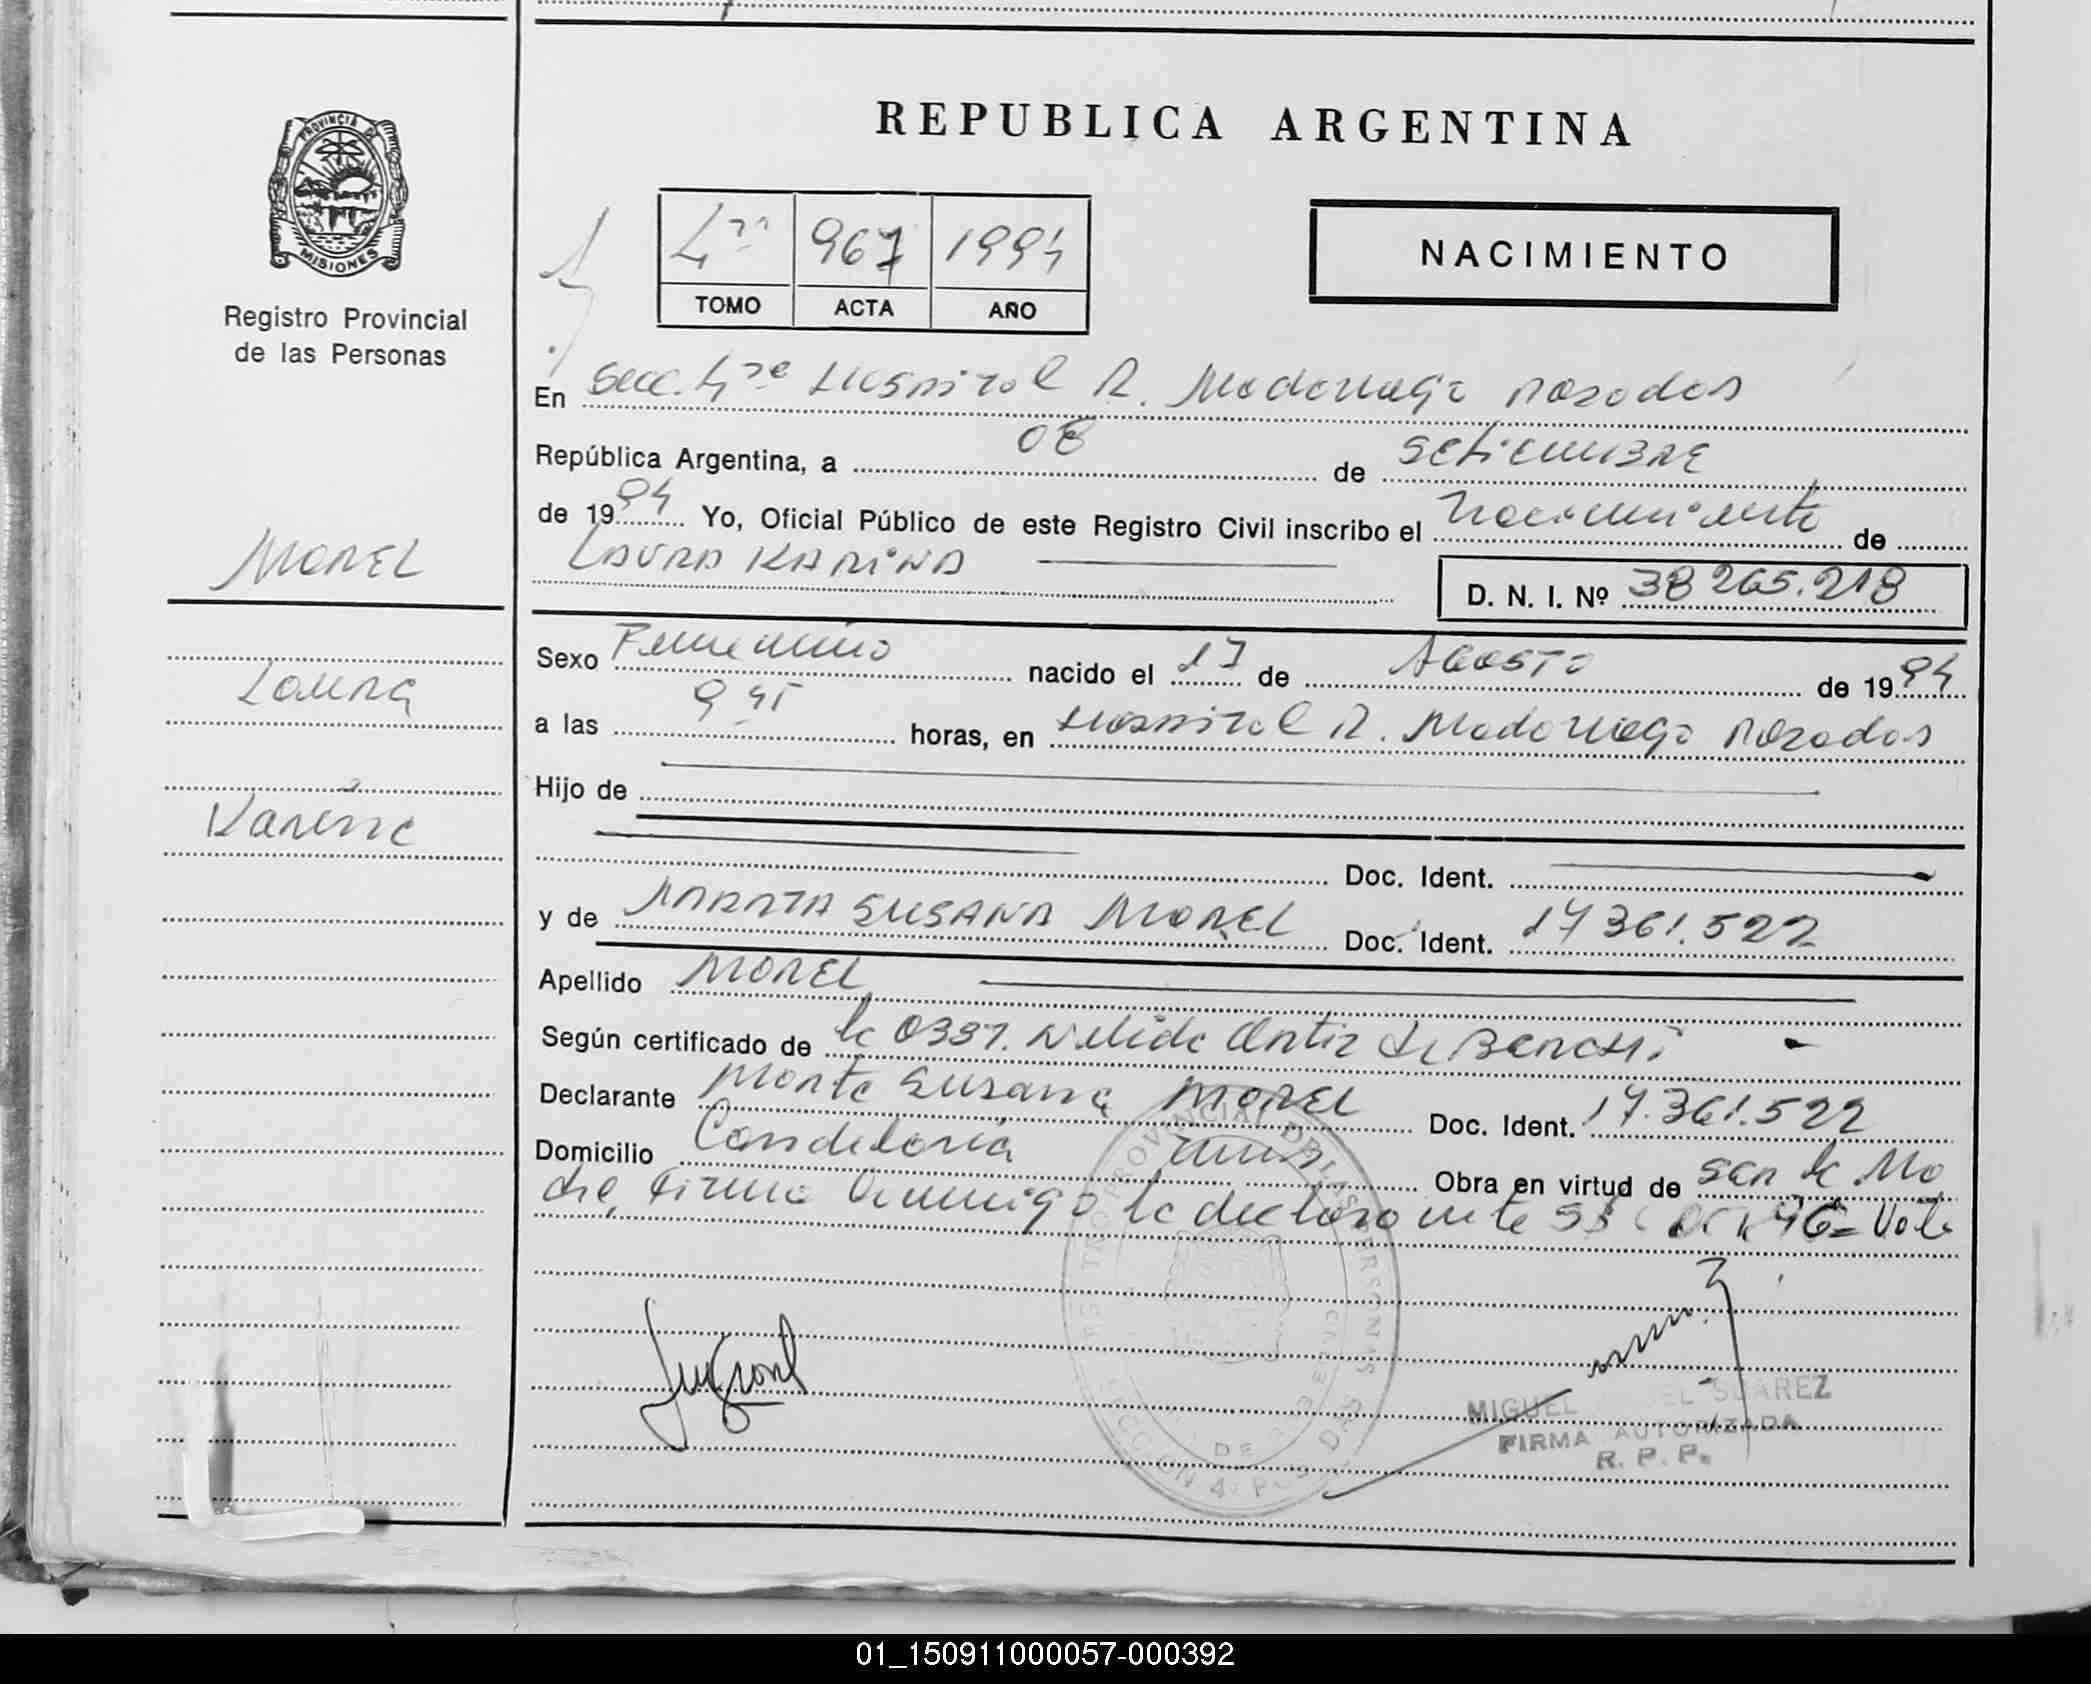 REPUBLICA ARGENTINA
PROVINCIA DE
MISIONES
Registro Provincial
de las Personas
4ta 967 1994
TOMO ACTA AÑO
NACIMIENTO
En Secc. 4ta Hospital R. Madariaga Posadas
República Argentina, a 08 de Setiembre
de 1994 Yo, Oficial Público de este Registro Civil inscribo el Nacimiento de
LAURA KARINA
D. N. I. Nº 38 265.218
MOREL
Laura
Karina
Sexo Femenino nacido el 17 de Agosto de 1994
a las 9 45 horas, en Hospital R. Madariaga Posadas
Hijo de
Doc. Ident.
y de MARTA SUSANA MOREL Doc. Ident. 17 361.522
Apellido MOREL
Según certificado de la Obst. Nelida Ortiz de
Declarante Marta Susana MOREL Doc. Ident. 17.361.522
Domicilio Candelaria Mnes Obra en virtud de ser la Ma
dre, Firma Conmigo la declarante Vale
REGISTRO PROVINCIAL DE LAS PERSONAS
MIGUEL ANGEL SUAREZ
FIRMA AUTORIZADA
R. P. P.
01_150911000057-000392